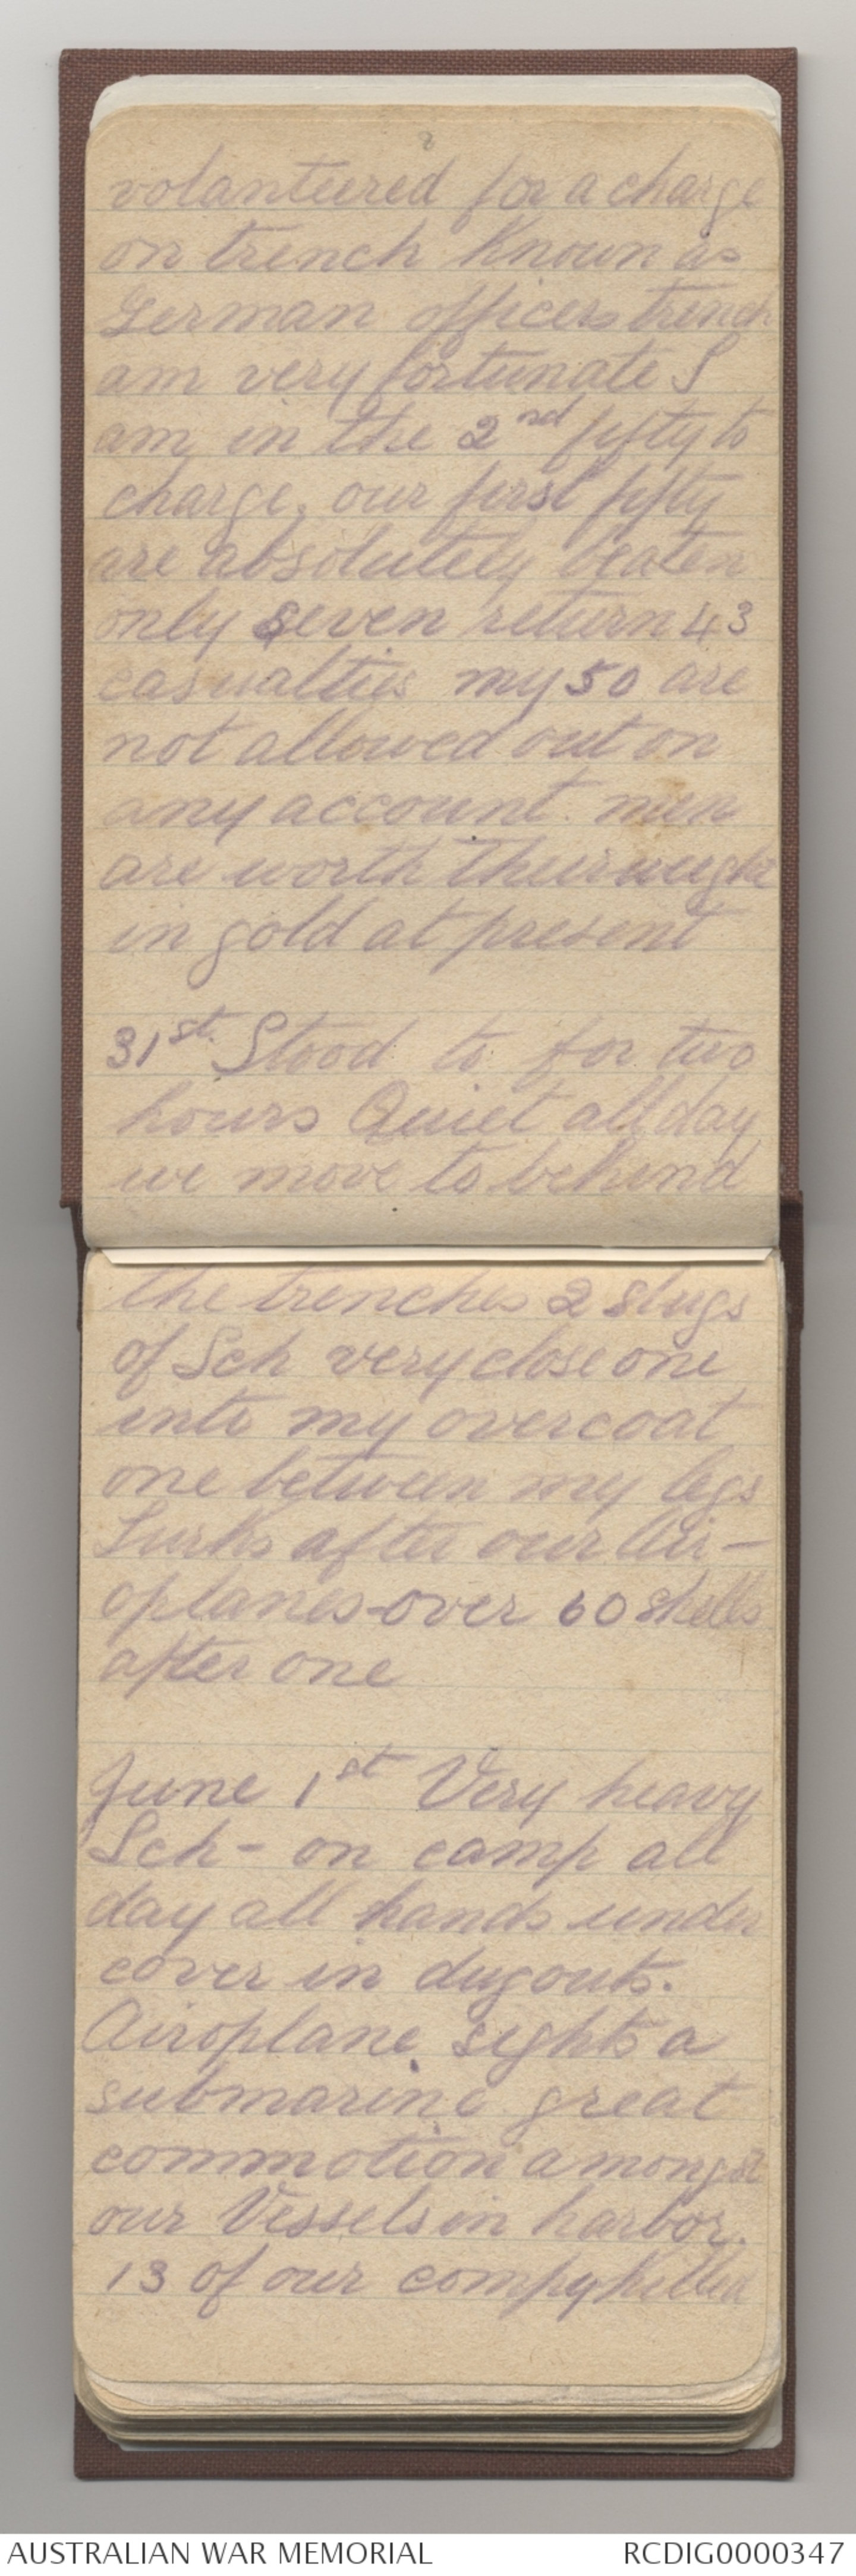 volanteered for a charge
on trench Known as
German officers trench
am very fortunate I
am in the 2nd fifty to
charge. our first fifty
are absolutely beaten
only seven return 43
casualties my 50 are
not allowed out on
any account. men
are worth their weight
in gold at present
31st. Stood to for two
hours Quiet all day
we move to behind
the trenches 2 slugs
of Sch very close one
into my overcoat
one between my legs
Turks after our Air-
oplanes-over 60 shells
after one
June 1st Very heavy
Sch- on camp all
day all hands under
cover in dugouts.
Airoplane sights a
submarine great
commotion amongst
our Vessels in harbor.
13 of our compy killed
AUSTRALIAN WAR MEMORIAL
RCDIG0000347